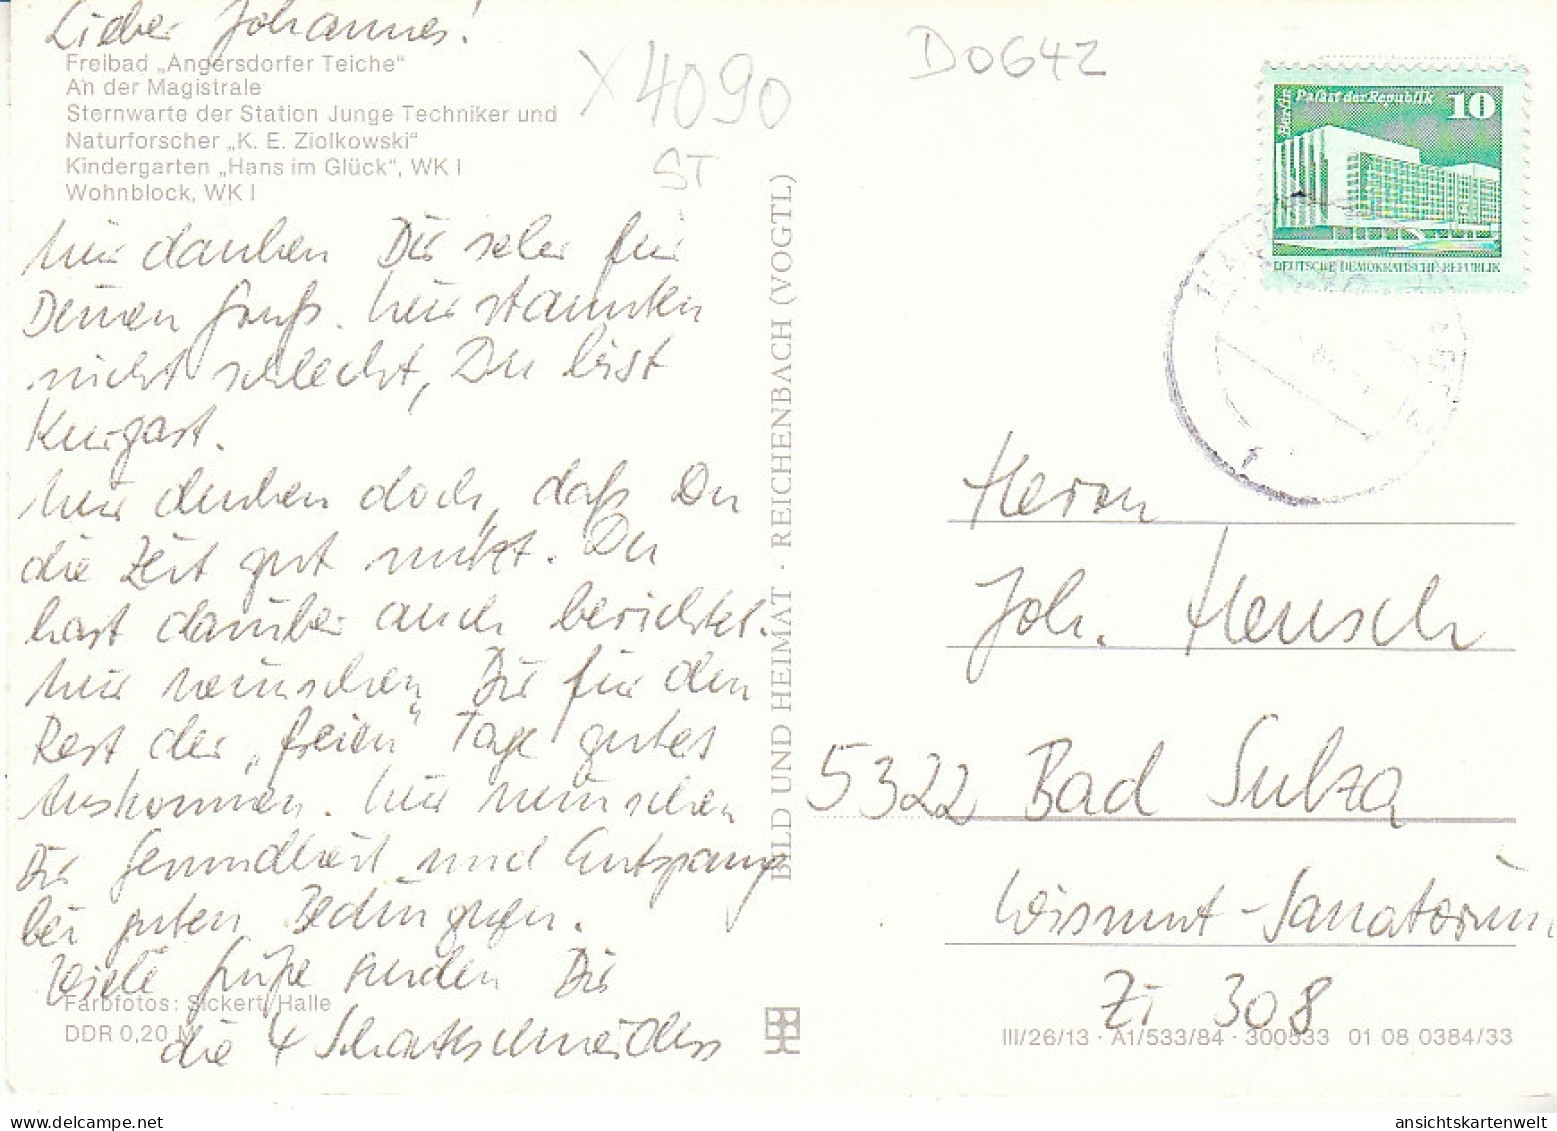 Lieber Johannes!
Freibad „Angersdorfer Teiche“
An der Magistrale
Sternwarte der Station Junge Techniker und
Naturforscher „K. E. Ziolkowski“
Kindergarten „Hans im Glück“, WK I
Wohnblock, WK I
Wir danken Dir sehr für
Deinen Gruß. Wir staunten
nicht schlecht, Du bist
Kurgast.
Wir denken doch, daß Du
die Zeit gut nützt. Du
hast darüber auch berichtet.
Wir wünschen Dir für den
Rest der „freien“ Tage gutes
Auskommen. Wir wünschen
Dir Gesundheit und Entspang
bei guten Bedingugen.
Viele Grüße senden Dir
die 4 Schattschneiders
Farbfotos: Sickert, Halle
DDR 0,20 M
X 4090
ST
D0642
BILD UND HEIMAT · REICHENBACH (VOGTL)
Berlin Palast der Republik 10
DEUTSCHE DEMOKRATISCHE REPUBLIK
Herrn
Joh. Hensch
5322 Bad Sulza
Wismut-Sanatorium
Zi 308
III/26/13 · A1/533/84 · 300533 01 08 0384/33
ansichtskartenwelt